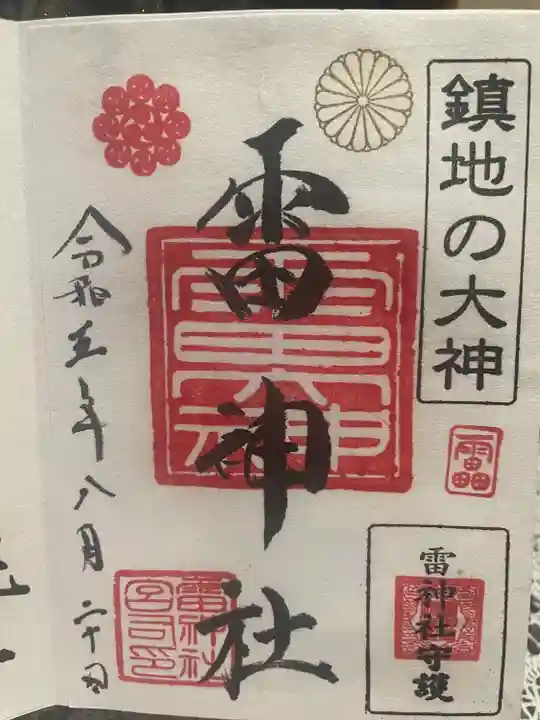 鎮地の大神
雷神社
雷大神
令和五年八月二十日
雷神社守護
雷神社
宮司印